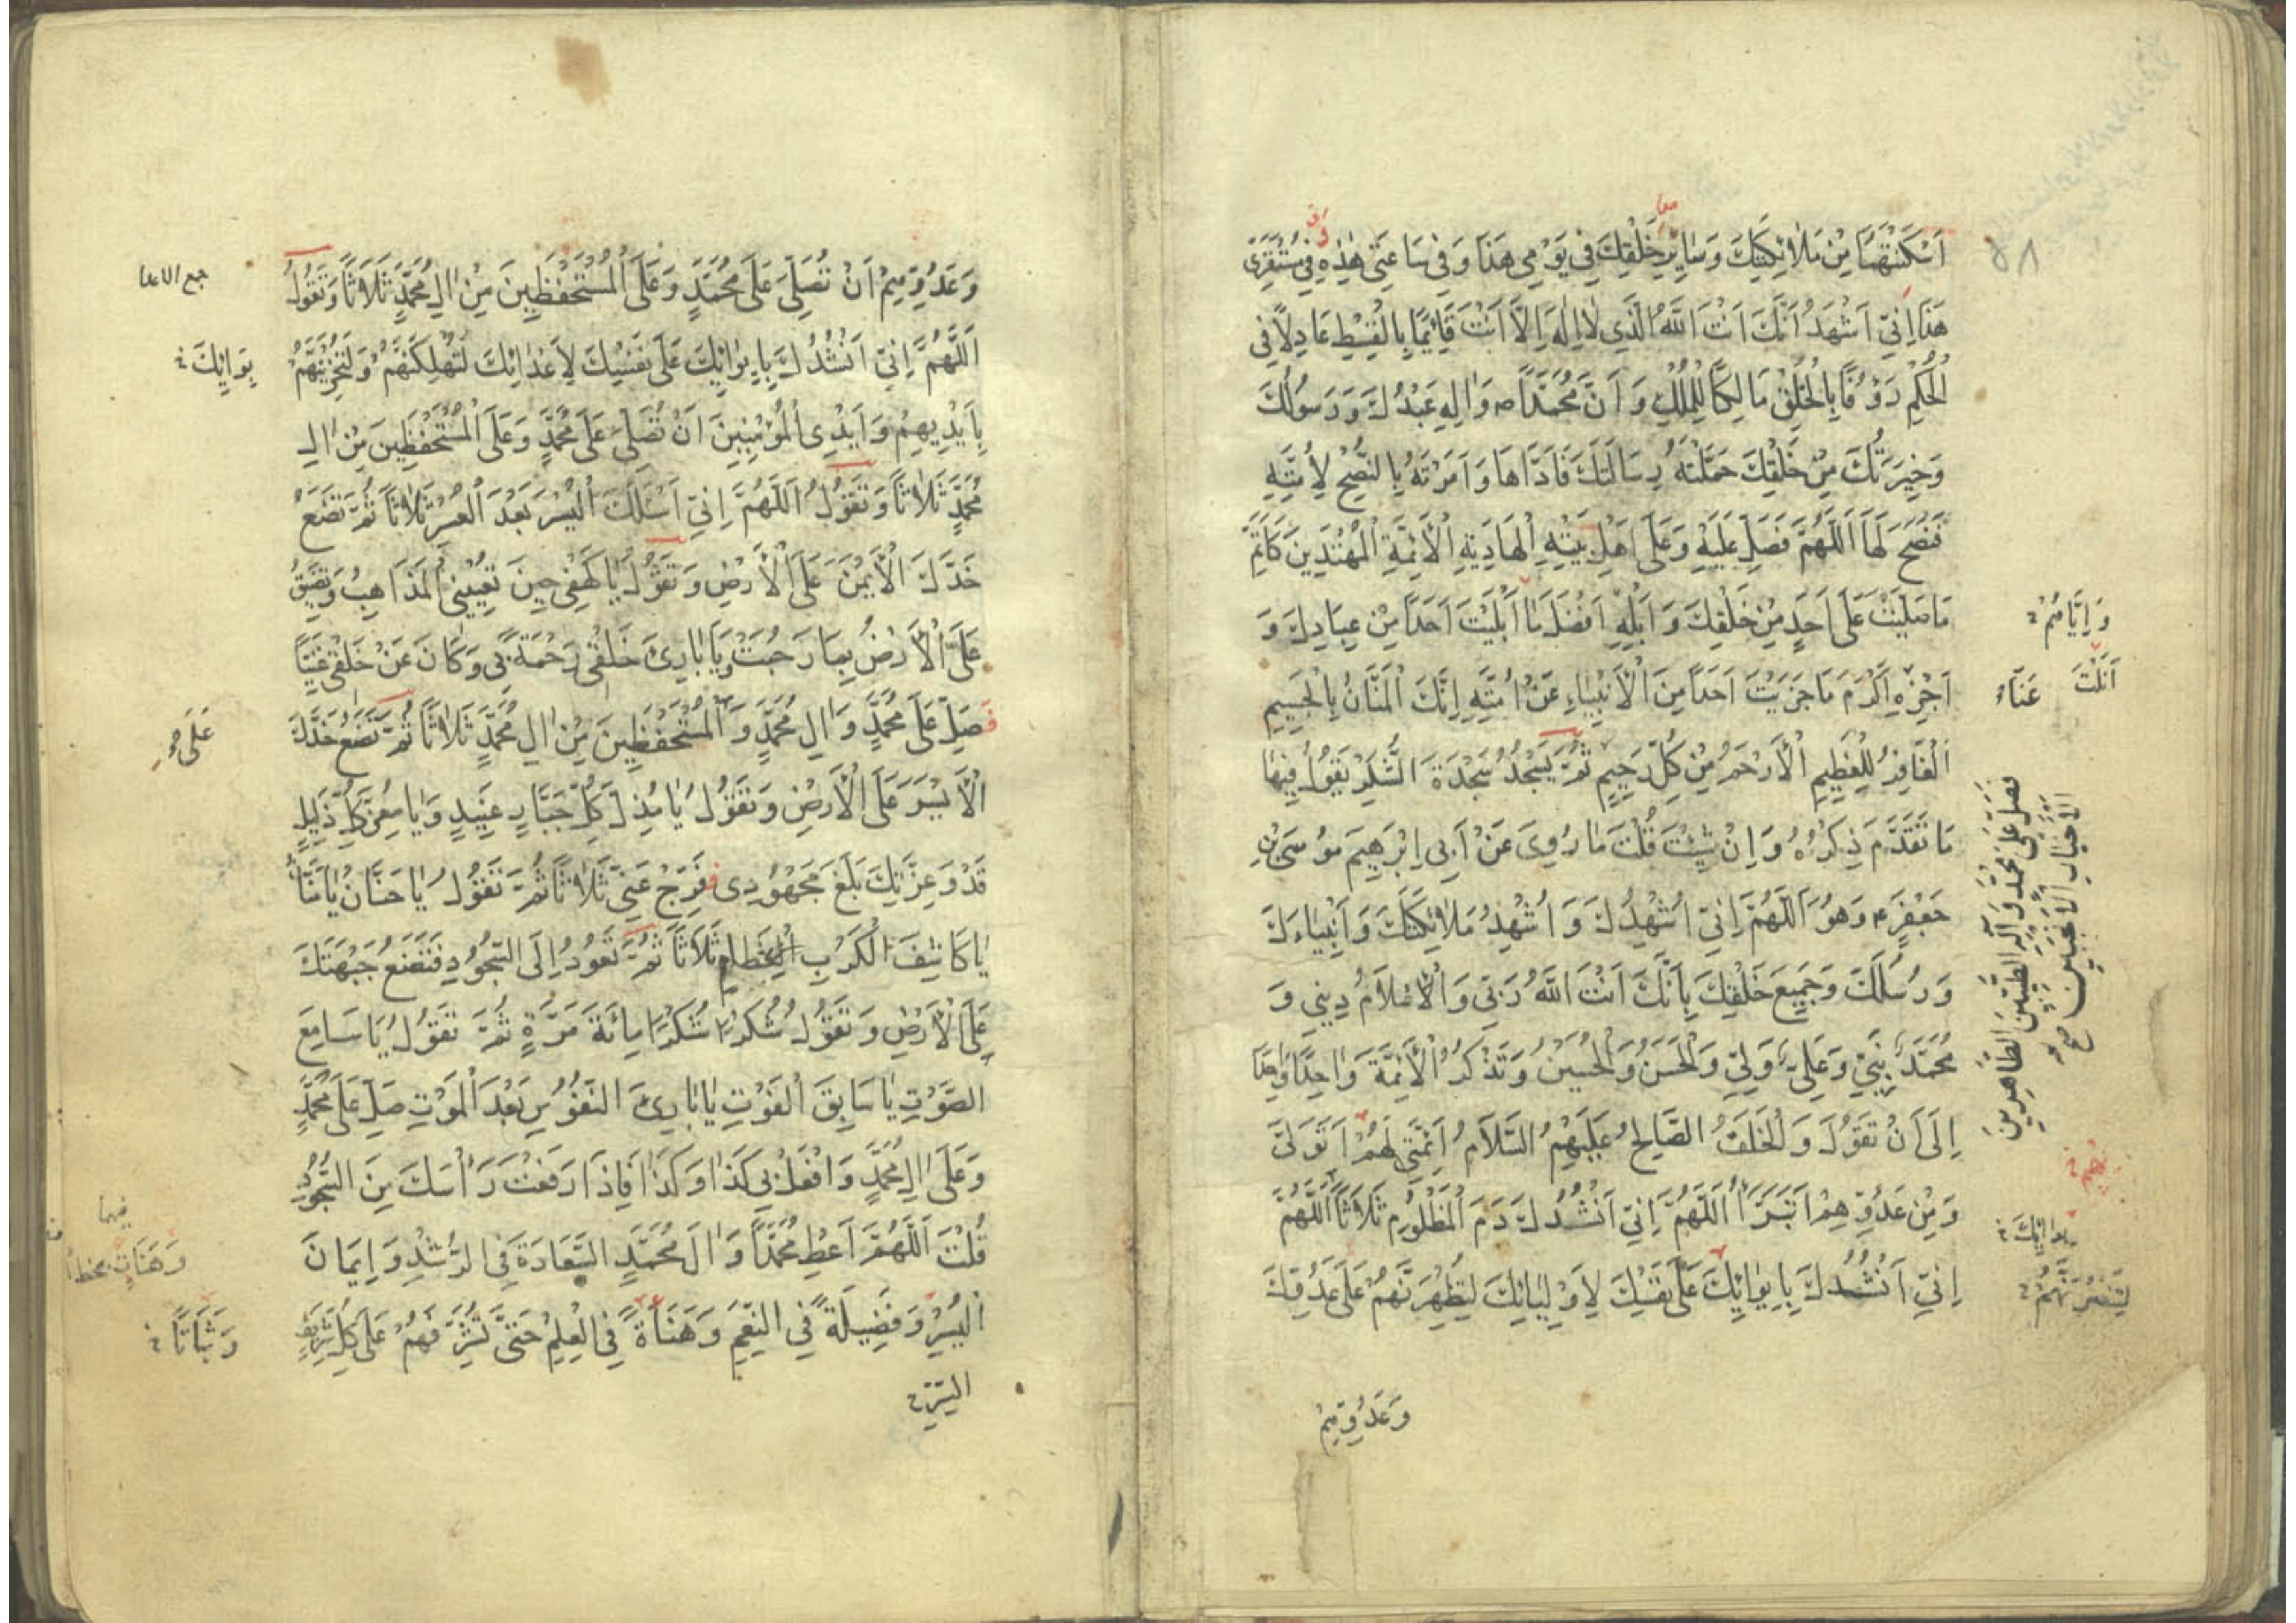 ٥٨
اَسْكَنْتَهَا مِنْ مَلَائِكَتِكَ وَسَائِرِ خَلْقِكَ فِي يَوْمِي هَذَا وَفِي سَاعَتِي هَذِهِ فِي مُسْتَقَرِّي
هَذَا اِنِّي اَشْهَدُ اَنَّكَ اَنْتَ اللَّهُ الَّذِي لَا اِلَهَ اِلَّا اَنْتَ قَائِمًا بِالْقِسْطِ عَادِلًا فِي
الْحُكْمِ رَؤُفًا بِالْخَلْقِ مَالِكًا لِلْمُلْكِ وَاَنَّ مُحَمَّدًا ص وَالِهِ عَبْدُكَ وَرَسُولُكَ
وَخِيَرَتُكَ مِنْ خَلْقِكَ حَمَّلْتَهُ رِسَالَتَكَ فَاَدَّاهَا وَاَمَرْتَهُ بِالنُّصْحِ لِاُمَّتِهِ
فَنَصَحَ لَهَا اَللَّهُمَّ فَصَلِّ عَلَيْهِ وَعَلَى اَهْلِ بَيْتِهِ الْهَادِيَةِ الْاَئِمَّةِ الْمُهْتَدِينَ كَاَتَمِّ
مَا صَلَّيْتَ عَلَى اَحَدٍ مِنْ خَلْقِكَ وَاَبْلِهِ اَفْضَلَ مَا اَبْلَيْتَ اَحَدًا مِنْ عِبَادِكَ وَ
اَجْزِهِ اَكْرَمَ مَا جَزَيْتَ اَحَدًا مِنَ الْاَنْبِيَاءِ عَنْ اُمَّتِهِ اِنَّكَ الْمَنَّانُ بِالْجَسِيمِ
الْغَافِرُ لِلْعَظِيمِ الْاَرْحَمُ مِنْ كُلِّ رَحِيمٍ ثُمَّ يَسْجُدُ سَجْدَةَ الشُّكْرِ يَقُولُ فِيهَا
مَا تَقَدَّمَ ذِكْرُهُ وَاِنْ شِئْتَ قُلْتَ مَا رُوِيَ عَنْ اَبِي اِبْرَهِيمَ مُوسَى بْنِ
جَعْفَرٍ ع وَهُوَ اَللَّهُمَّ اِنِّي اُشْهِدُكَ وَاُشْهِدُ مَلَائِكَتَكَ وَاَنْبِيَاءَكَ
وَرُسُلَكَ وَجَمِيعَ خَلْقِكَ بِاَنَّكَ اَنْتَ اللَّهُ رَبِّي وَالْاِسْلَامُ دِينِي وَ
مُحَمَّدٌ نَبِيِّي وَعَلِيٌّ وَلِيِّي وَالْحَسَنُ وَالْحُسَيْنُ وَتَذْكُرُ الْاَئِمَّةَ وَاحِدًا وَاحِدًا
اِلَى اَنْ تَقُولَ وَالْخَلَفُ الصَّالِحُ عَلَيْهِمُ السَّلَامُ اَئِمَّتِي لَهُمْ اَتَوَلَّى
وَمِنْ عَدُوِّهِمْ اَتَبَرَّأُ اَللَّهُمَّ اِنِّي اَنْشُدُكَ دَمَ الْمَظْلُومِ ثَلَاثًا اَللَّهُمَّ
اِنِّي اَنْشُدُكَ بِاِيوَائِكَ عَلَى نَفْسِكَ لِاَوْلِيَائِكَ لَتُظْهِرَنَّهُمْ عَلَى عَدُوِّكَ
وَعَدُوِّهِمْ
اَنَلْتَ
عَنَّاءُ
فَصَلِّ عَلَى مُحَمَّدٍ وَآلِهِ الطَّيِّبِينَ الطَّاهِرِينَ
الْاَخْيَارِ الْاَنْجَبِينَ صح
بوائِكَ
لَتَنْصُرَنَّهُمْ
وَعَدُوِّهِمْ اَنْ تُصَلِّيَ عَلَى مُحَمَّدٍ وَعَلَى الْمُسْتَحْفَظِينَ مِنْ الِ مُحَمَّدٍ ثَلَاثًا وَتَقُولُ
اَللَّهُمَّ اِنِّي اَنْشُدُكَ بِاِيوَائِكَ عَلَى نَفْسِكَ لِاَعْدَائِكَ لَتُهْلِكَنَّهُمْ وَلَتُخْزِيَنَّهُمْ
بِاَيْدِيهِمْ وَاَيْدِي الْمُؤْمِنِينَ اَنْ تُصَلِّيَ عَلَى مُحَمَّدٍ وَعَلَى الْمُسْتَحْفَظِينَ مِنْ الِ
مُحَمَّدٍ ثَلَاثًا وَتَقُولُ اَللَّهُمَّ اِنِّي اَسْئَلُكَ الْيُسْرَ بَعْدَ الْعُسْرِ ثَلَاثًا ثُمَّ تَضَعُ
خَدَّكَ الْاَيْمَنَ عَلَى الْاَرْضِ وَتَقُولُ يَا كَهْفِي حِينَ تُعْيِينِي الْمَذَاهِبُ وَتَضِيقُ
عَلَيَّ الْاَرْضُ بِمَا رَحُبَتْ وَيَا بَارِئَ خَلْقِي رَحْمَةً بِي وَكَانَ عَنْ خَلْقِي غَنِيًّا
فَصَلِّ عَلَى مُحَمَّدٍ وَالِ مُحَمَّدٍ وَالْمُسْتَحْفَظِينَ مِنْ الِ مُحَمَّدٍ ثَلَاثًا ثُمَّ تَضَعُ خَدَّكَ
الْاَيْسَرَ عَلَى الْاَرْضِ وَتَقُولُ يَا مُذِلَّ كُلِّ جَبَّارٍ عَنِيدٍ وَيَا مُعِزَّ كُلِّ ذَلِيلٍ
قَدْ وَعِزَّتِكَ بَلَغَ مَجْهُودِي فَفَرِّجْ عَنِّي ثَلَاثًا ثُمَّ تَقُولُ يَا حَنَّانُ يَا مَنَّانُ
يَا كَاشِفَ الْكُرَبِ الْعِظَامِ ثَلَاثًا ثُمَّ تَعُودُ اِلَى السُّجُودِ فَتَضَعُ جَبْهَتَكَ
عَلَى الْاَرْضِ وَتَقُولُ شُكْرًا شُكْرًا مِائَةَ مَرَّةٍ ثُمَّ تَقُولُ يَا سَامِعَ
الصَّوْتِ يَا سَابِقَ الْفَوْتِ يَا بَارِئَ النُّفُوسِ بَعْدَ الْمَوْتِ صَلِّ عَلَى مُحَمَّدٍ
وَعَلَى الِ مُحَمَّدٍ وَافْعَلْ بِي كَذَا وَكَذَا فَاِذَا رَفَعْتَ رَأْسَكَ مِنَ السُّجُودِ
قُلْتَ اَللَّهُمَّ اَعْطِ مُحَمَّدًا وَالَ مُحَمَّدٍ السَّعَادَةَ فِي الرُّشْدِ وَاِيمَانَ
الْيُسْرِ وَفَضِيلَةً فِي النِّعَمِ وَهَنَاءَةً فِي الْعِلْمِ حَتَّى تُشَرِّفَهُمْ عَلَى كُلِّ شَرِيفٍ
بِوَائِكَ
عَلَى
وَهَنَاتٍ
وَثَبَاتًا